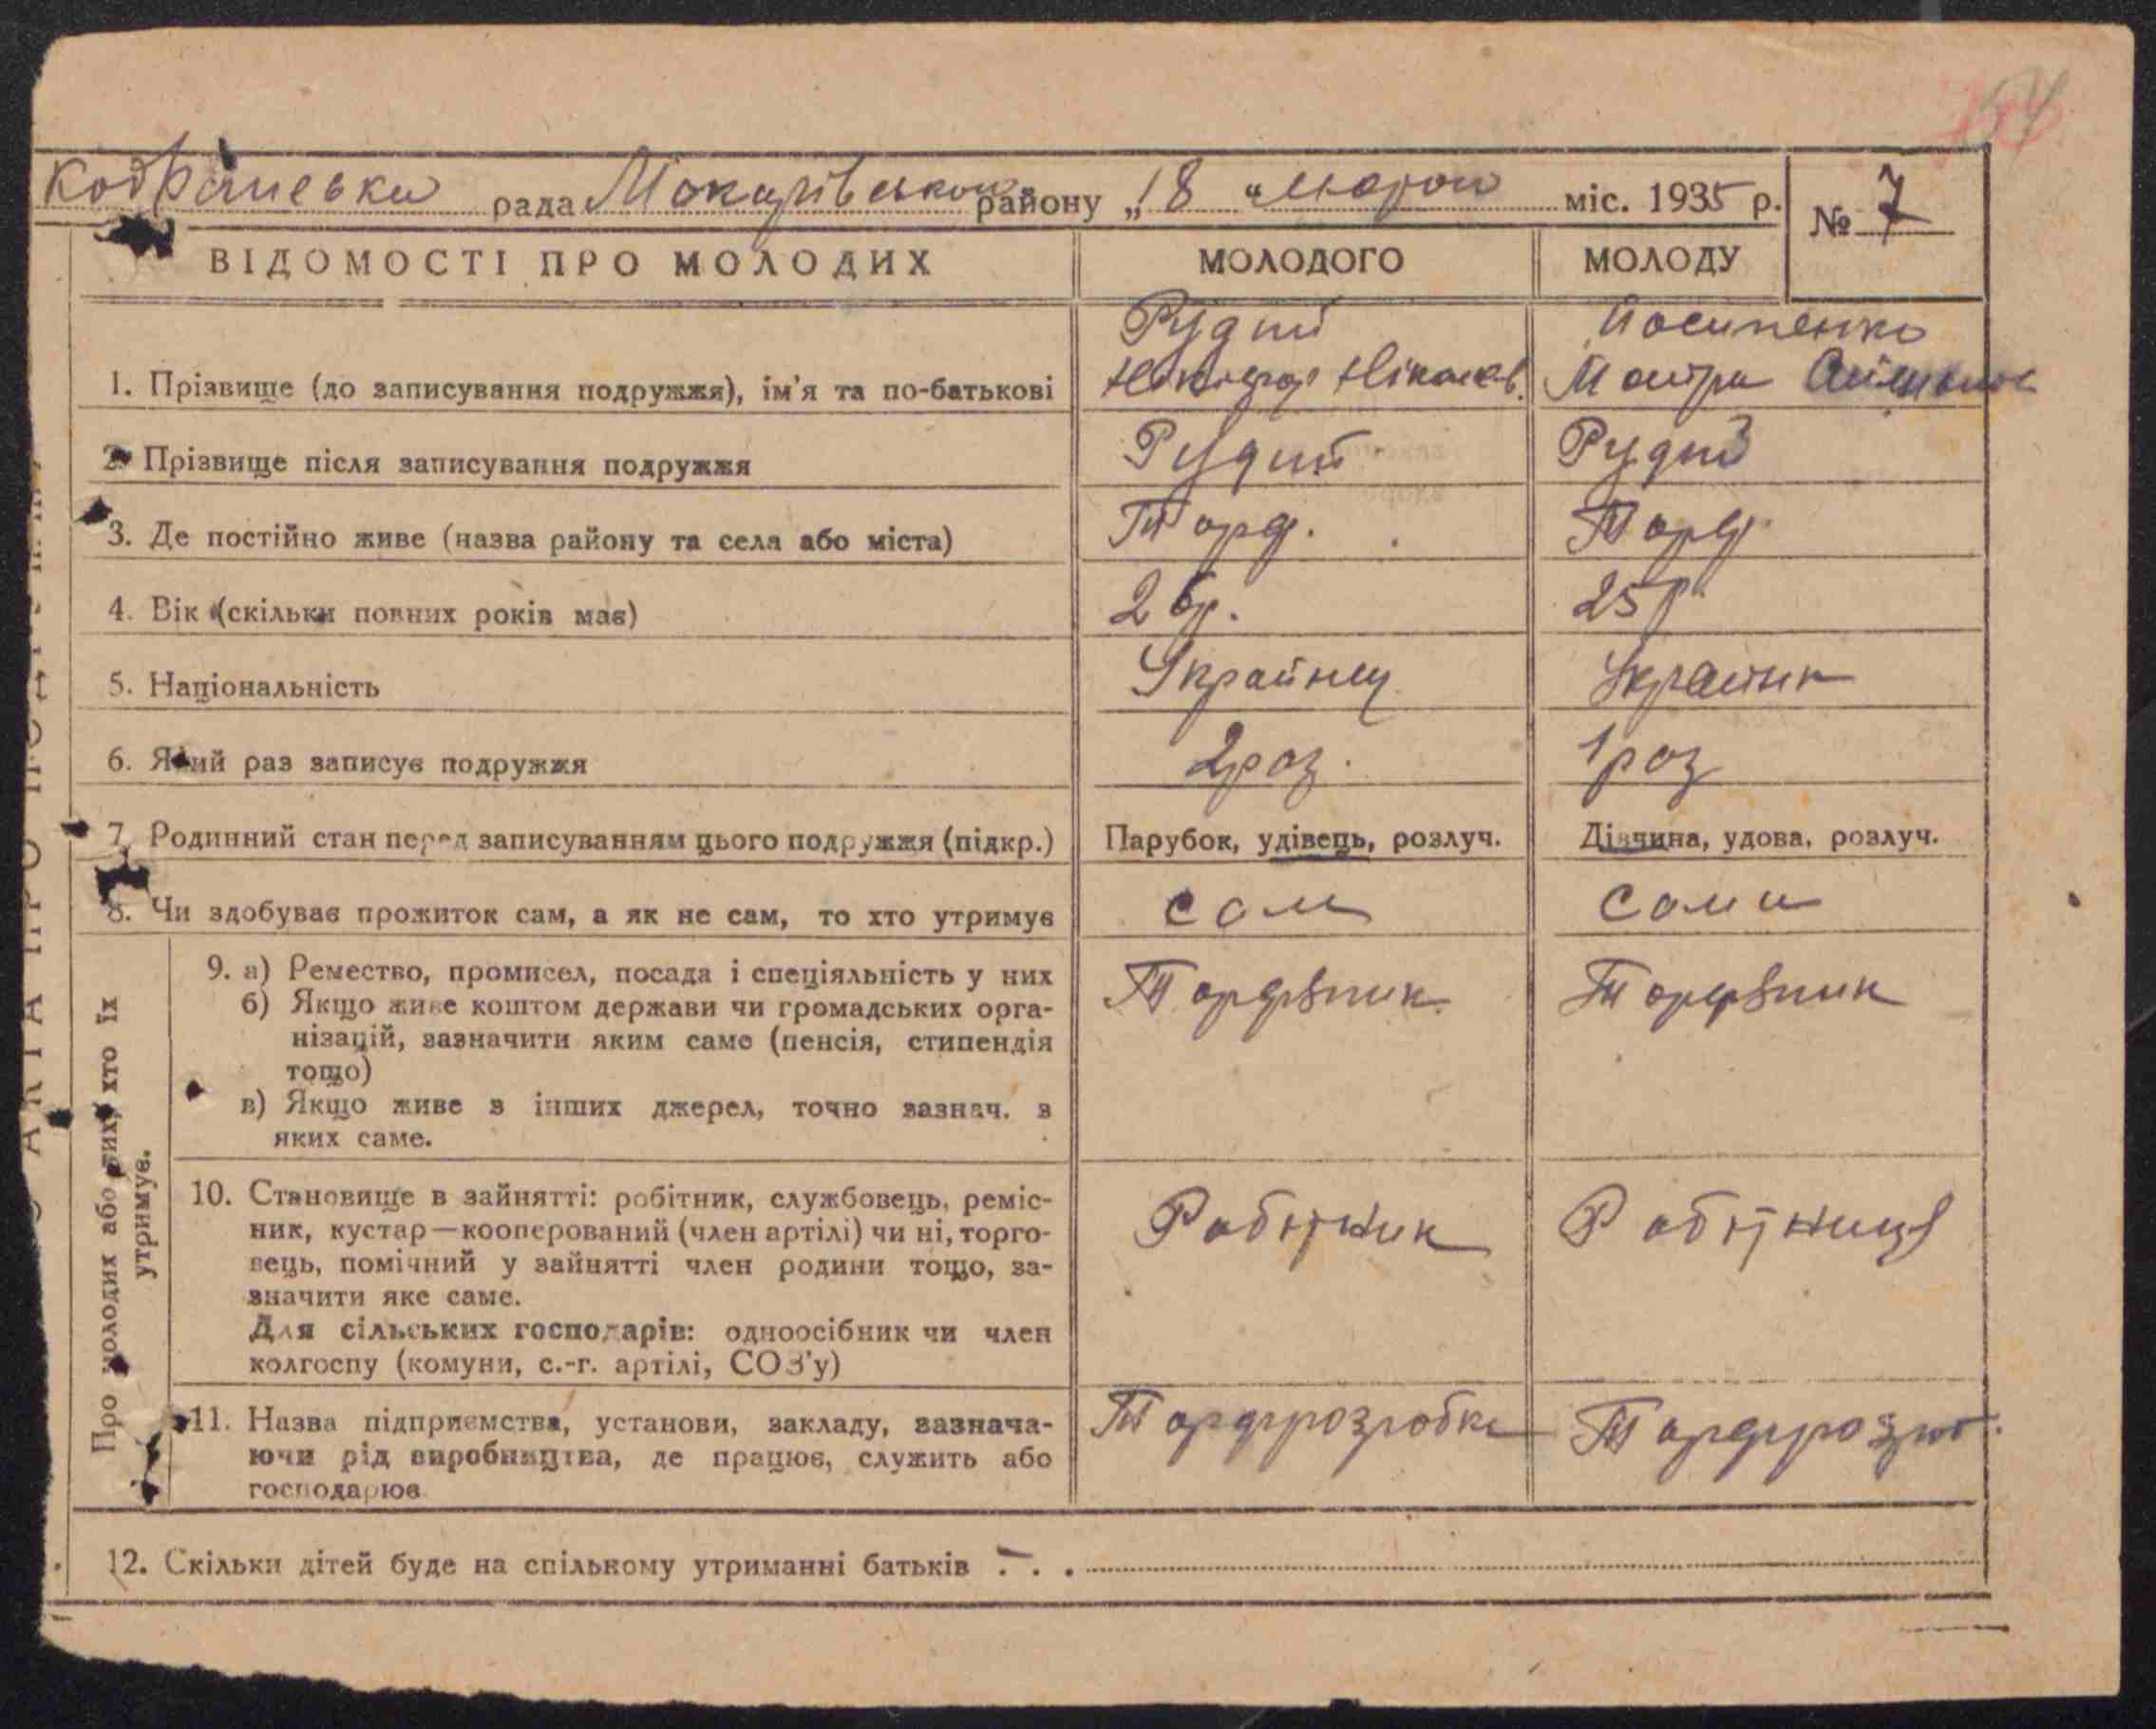 рада Макарівського району „18“ лютого міс. 1935 р.
№ 7
ВІДОМОСТІ ПРО МОЛОДИХ МОЛОДОГО МОЛОДУ
Рудий Йосипенко
1. Прізвище (до записування подружжя), ім'я та по-батькові
2. Прізвище після записування подружжя Рудий Рудий
3. Де постійно живе (назва району та села або міста) Торф. Торф.
4. Вік (скільки повних років має) 26р. 25р.
5. Національність Українец Українк
6. Який раз записує подружжя 2 раз. 1 раз
7. Родинний стан перед записуванням цього подружжя (підкр.) Парубок, удівець, розлуч. Дівчина, удова, розлуч.
8. Чи здобуває прожиток сам, а як не сам, то хто утримує сам сама
Про молодих або тих, хто їх
утримує.
9. а) Ремество, промисел, посада і спеціяльність у них Торфяник Торфяник
б) Якщо живе коштом держави чи громадських орга-
нізацій, зазначити яким саме (пенсія, стипендія
тощо)
в) Якщо живе з інших джерел, точно зазнач. з
яких саме.
10. Становище в зайнятті: робітник, службовець, реміс- Робітник Робітниця
ник, кустар—кооперований (член артілі) чи ні, торго-
вець, помічний у зайнятті член родини тощо, за-
значити яке саме.
Для сільських господарів: одноосібник чи член
колгоспу (комуни, с.-г. артілі, СОЗ'у)
11. Назва підприємства, установи, закладу, зазнача- Торфрозробка Торфрозроб.
ючи рід виробництва, де працює, служить або
господарює
12. Скільки дітей буде на спількому утриманні батьків – . .